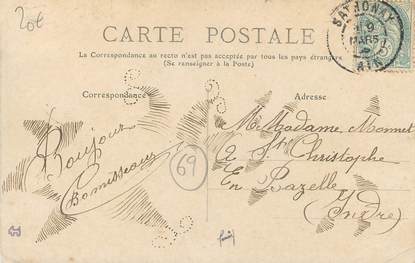 20€
CARTE POSTALE
La Correspondance au recto n'est pas acceptée par tous les pays étrangers
(Se renseigner à la Poste)
SATHONAY
MARS
AIN
Correspondance
Adresse
Bonjour
69
M. Madame Monnet
a St. Christophe
En Bazelle
Indre)